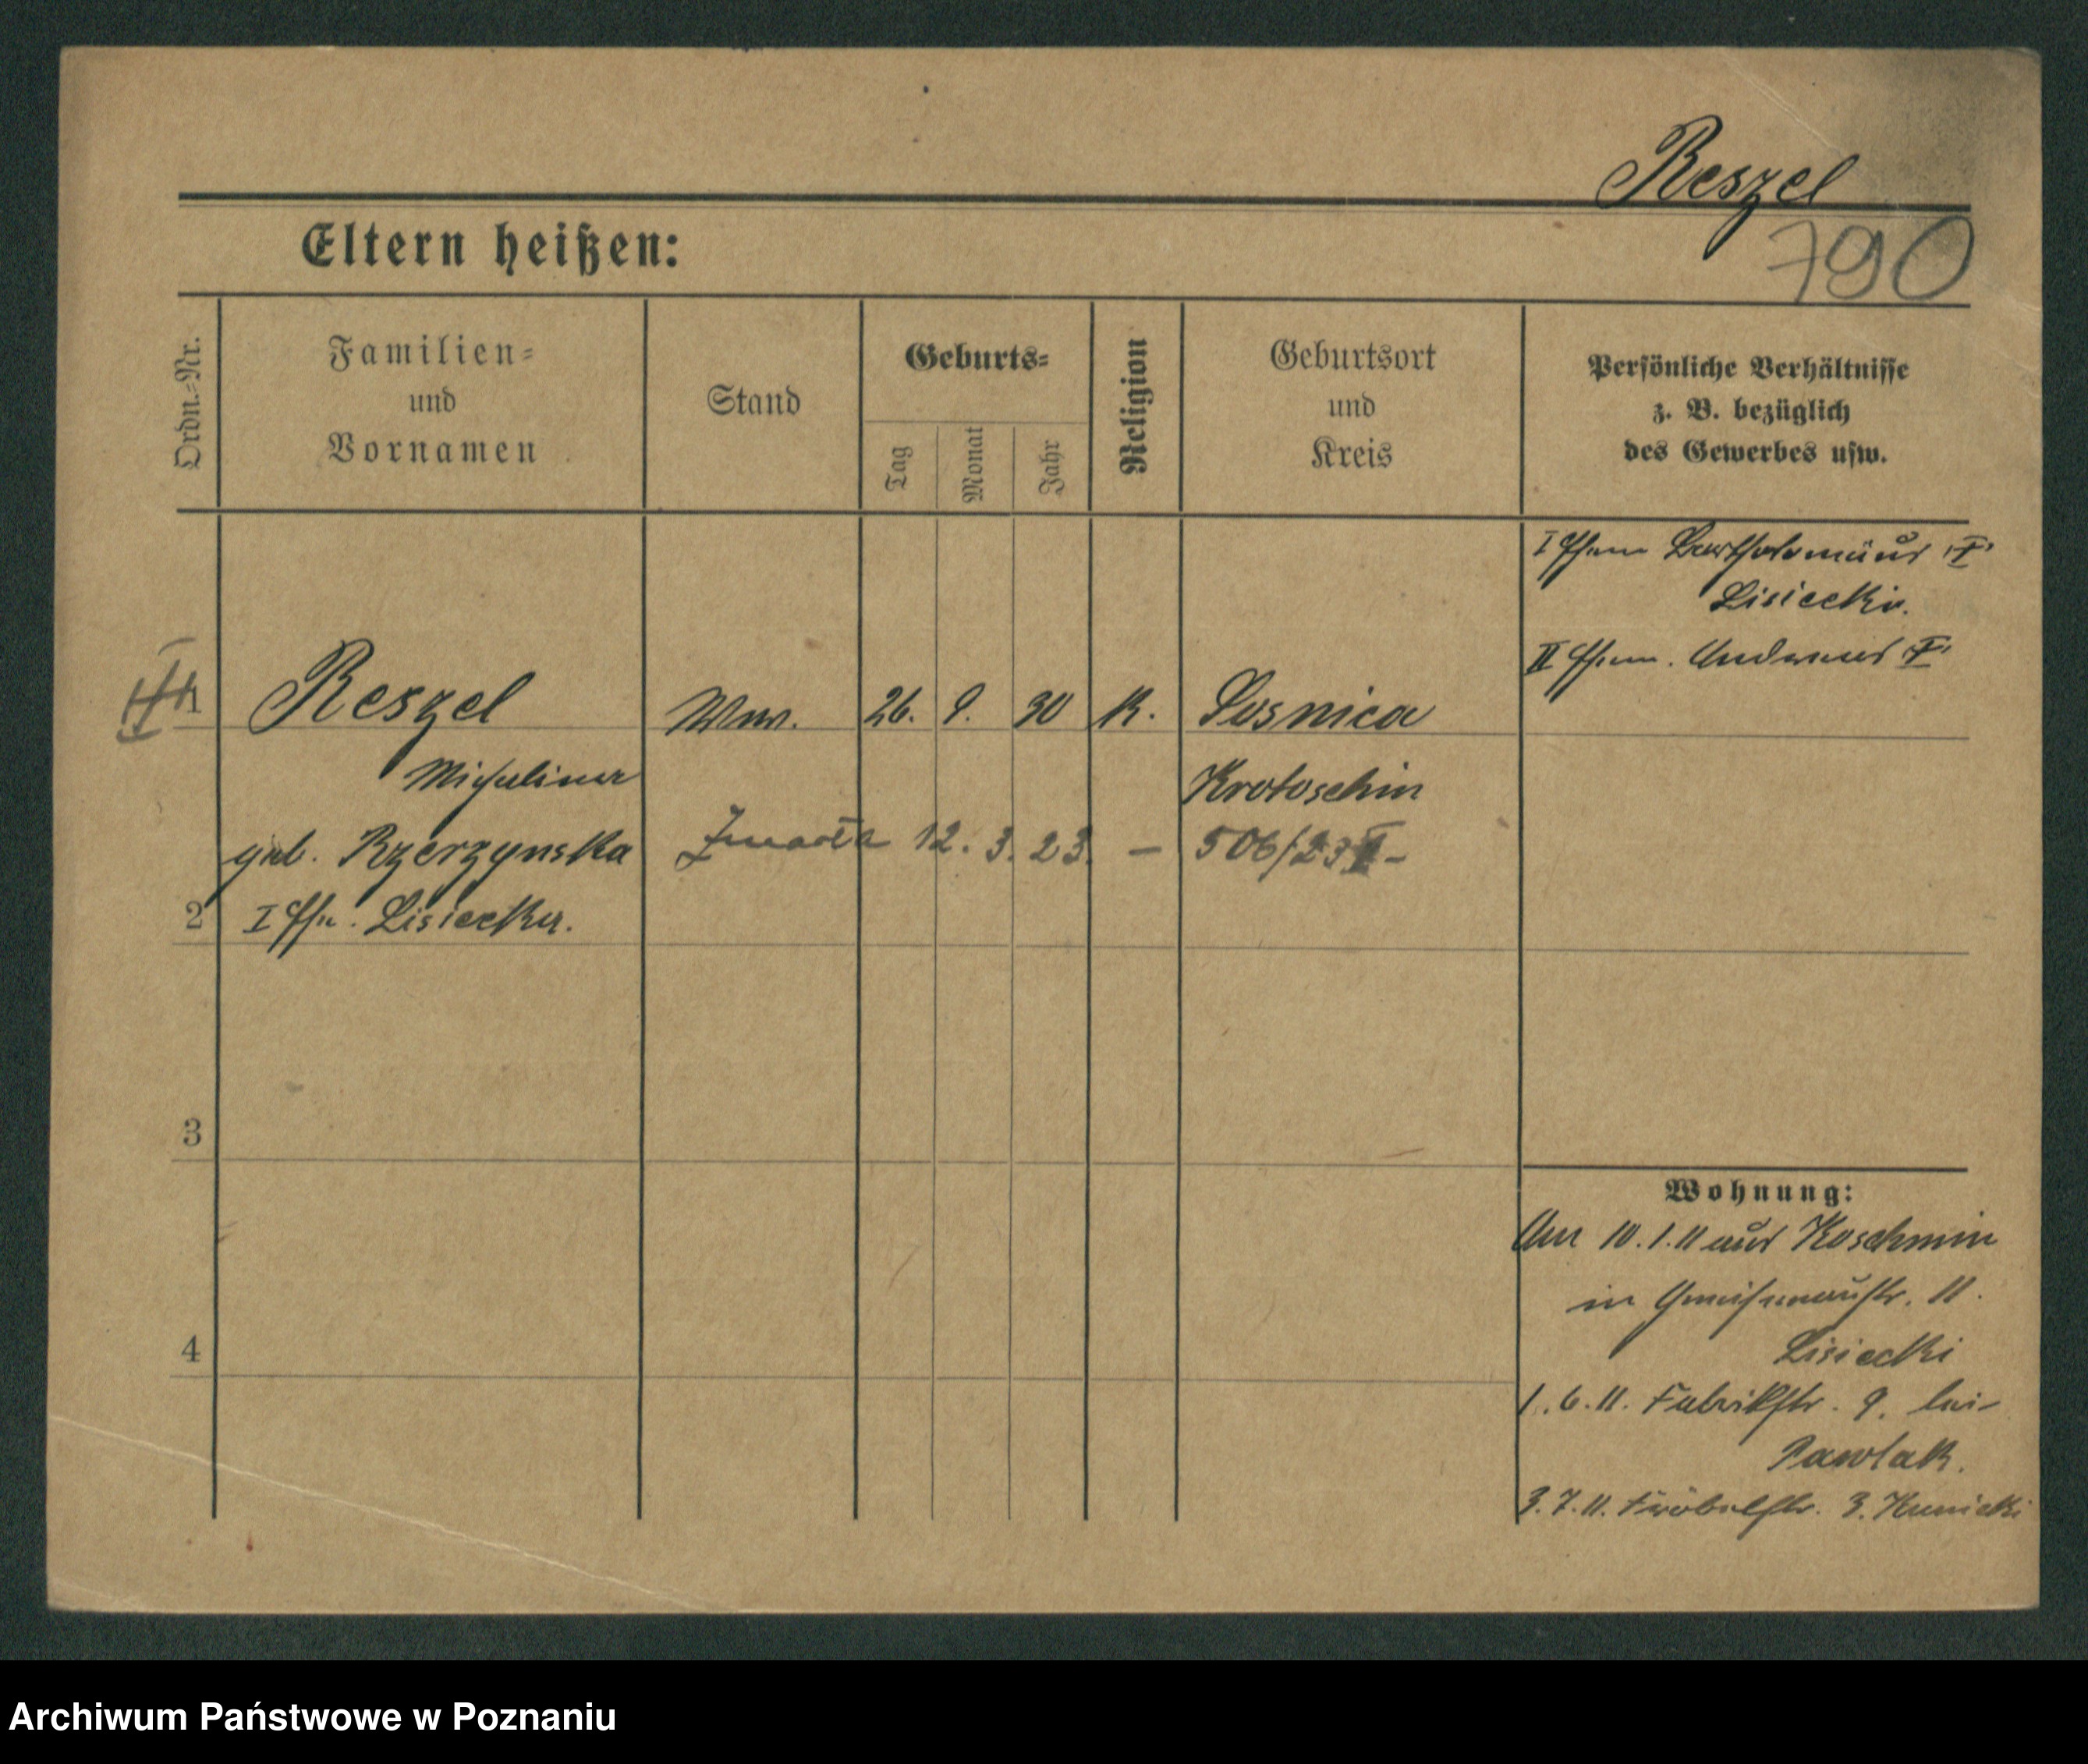 Reszel
Eltern heißen:
790
Ordn.=Nr.
Familien=
und
Vornamen
Stand
Geburts=
Tag
Monat
Jahr
Religion
Geburtsort
und
Kreis
Persönliche Verhältnisse
z. B. bezüglich
des Gewerbes usw.
I Ehem Bartholomäus "†"
Lisiecki.
II Ehem. Andreas "†"
1
Reszel
Wwe.
26.
9.
30
K.
Sosnica
Michalina
Krotoschin
geb. Rzerzynska
Zmarła 12. 3. 23. — 506/23 II -
2
I Ehe. Lisiecka.
3
4
Wohnung:
Am 10.1.11 aus Koschmin
in Gneisenaustr. 11.
Lisiecki
1.6.11. Fabrikstr. 9. bei
Pawlak.
3.7.11. Fröbelstr. 3. Kunicki
Archiwum Państwowe w Poznaniu